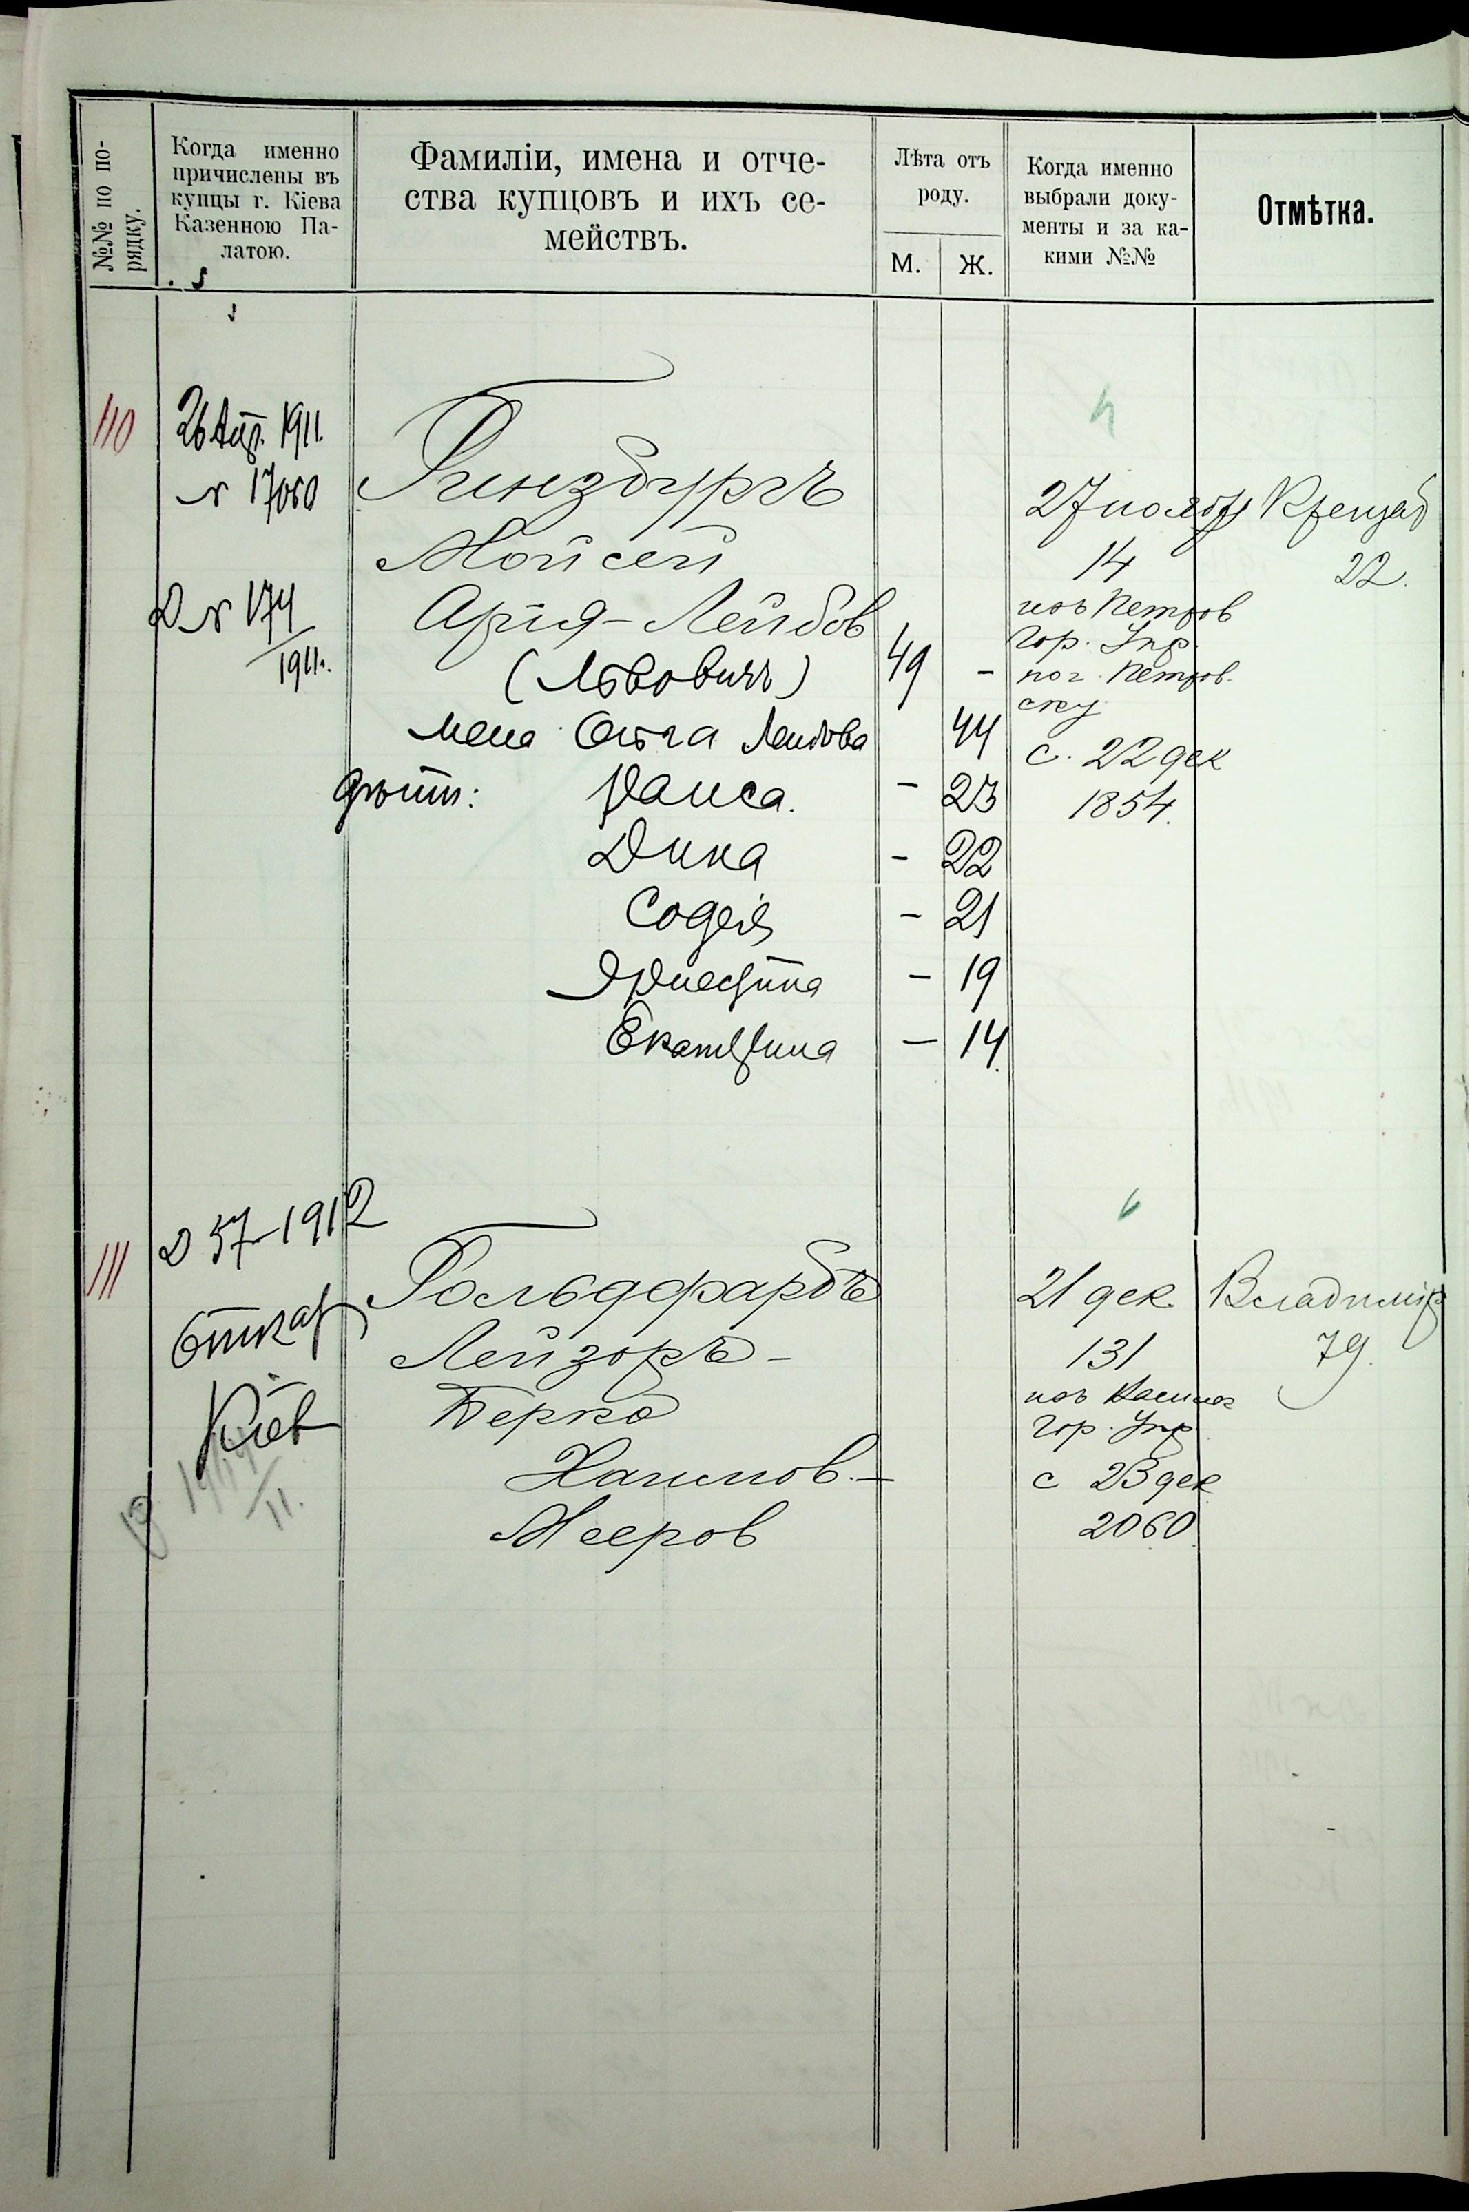 №№ по по-
рядку.
Когда именно
причислены въ
купцы г. Кіева
Казенною Па-
латою.
Фамиліи, имена и отче-
ства купцовъ и ихъ се-
мействъ.
Лѣта отъ
роду.
М. Ж.
Когда именно
выбрали доку-
менты и за ка-
кими №№
Отмѣтка.
110
26 Апр. 1911.
№ 17060
Д № 174
1911.
Гинзбургъ
Мойсей
Арія-Лейбов
(Львовичъ) 49 -
жена Ольга Леибова 44
дѣти: Раиса. - 23
Дина - 22
Софія - 21
Эрнестина - 19
Екатерина - 14
27 ноября
14
изъ Петров
Гор. Упр.
по г. Петров-
ску
с. 22 дек
1854.
Крещат
22.
111
Д 57-1912
Кіев
1914
11.
Гольдфарбъ
Лейзоръ-
Берко
Хаимов.-
Мееров
21 дек.
131
изъ
Гор. Упр.
с 23 дек
2060
Владимір
79.